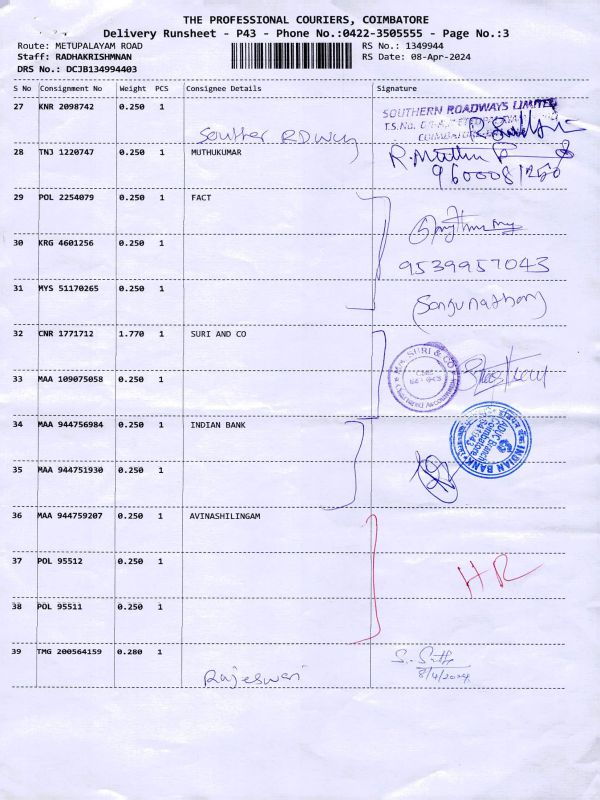 THE PROFESSIONAL COURIERS, COIMBATORE
Delivery Runsheet - P43 - Phone No.:0422-3505555 - Page No.:3
Route: METUPALAYAM ROAD
RS No.: 1349944
Staff: RADHAKRISHMNAN
RS Date: 08-Apr-2024
DRS No.: DCJB134994403
S No Consignment No Weight PCS Consignee Details Signature
27 KNR 2098742 0.250 1
SOUTHERN ROADWAYS LIMITED
28 TNJ 1220747 0.250 1 MUTHUKUMAR
R. Muthu
9600081250
29 POL 2254079 0.250 1 FACT
30 KRG 4601256 0.250 1
9539957043
31 MYS 51170265 0.250 1
32 CNR 1771712 1.770 1 SURI AND CO
M/s. SURI & CO
33 MAA 109075058 0.250 1
34 MAA 944756984 0.250 1 INDIAN BANK
INDIAN BANK
Branch
35 MAA 944751930 0.250 1
36 MAA 944759207 0.250 1 AVINASHILINGAM
37 POL 95512 0.250 1
HR
38 POL 95511 0.250 1
39 TMG 200564159 0.280 1
Rajeswari
8/4/2024